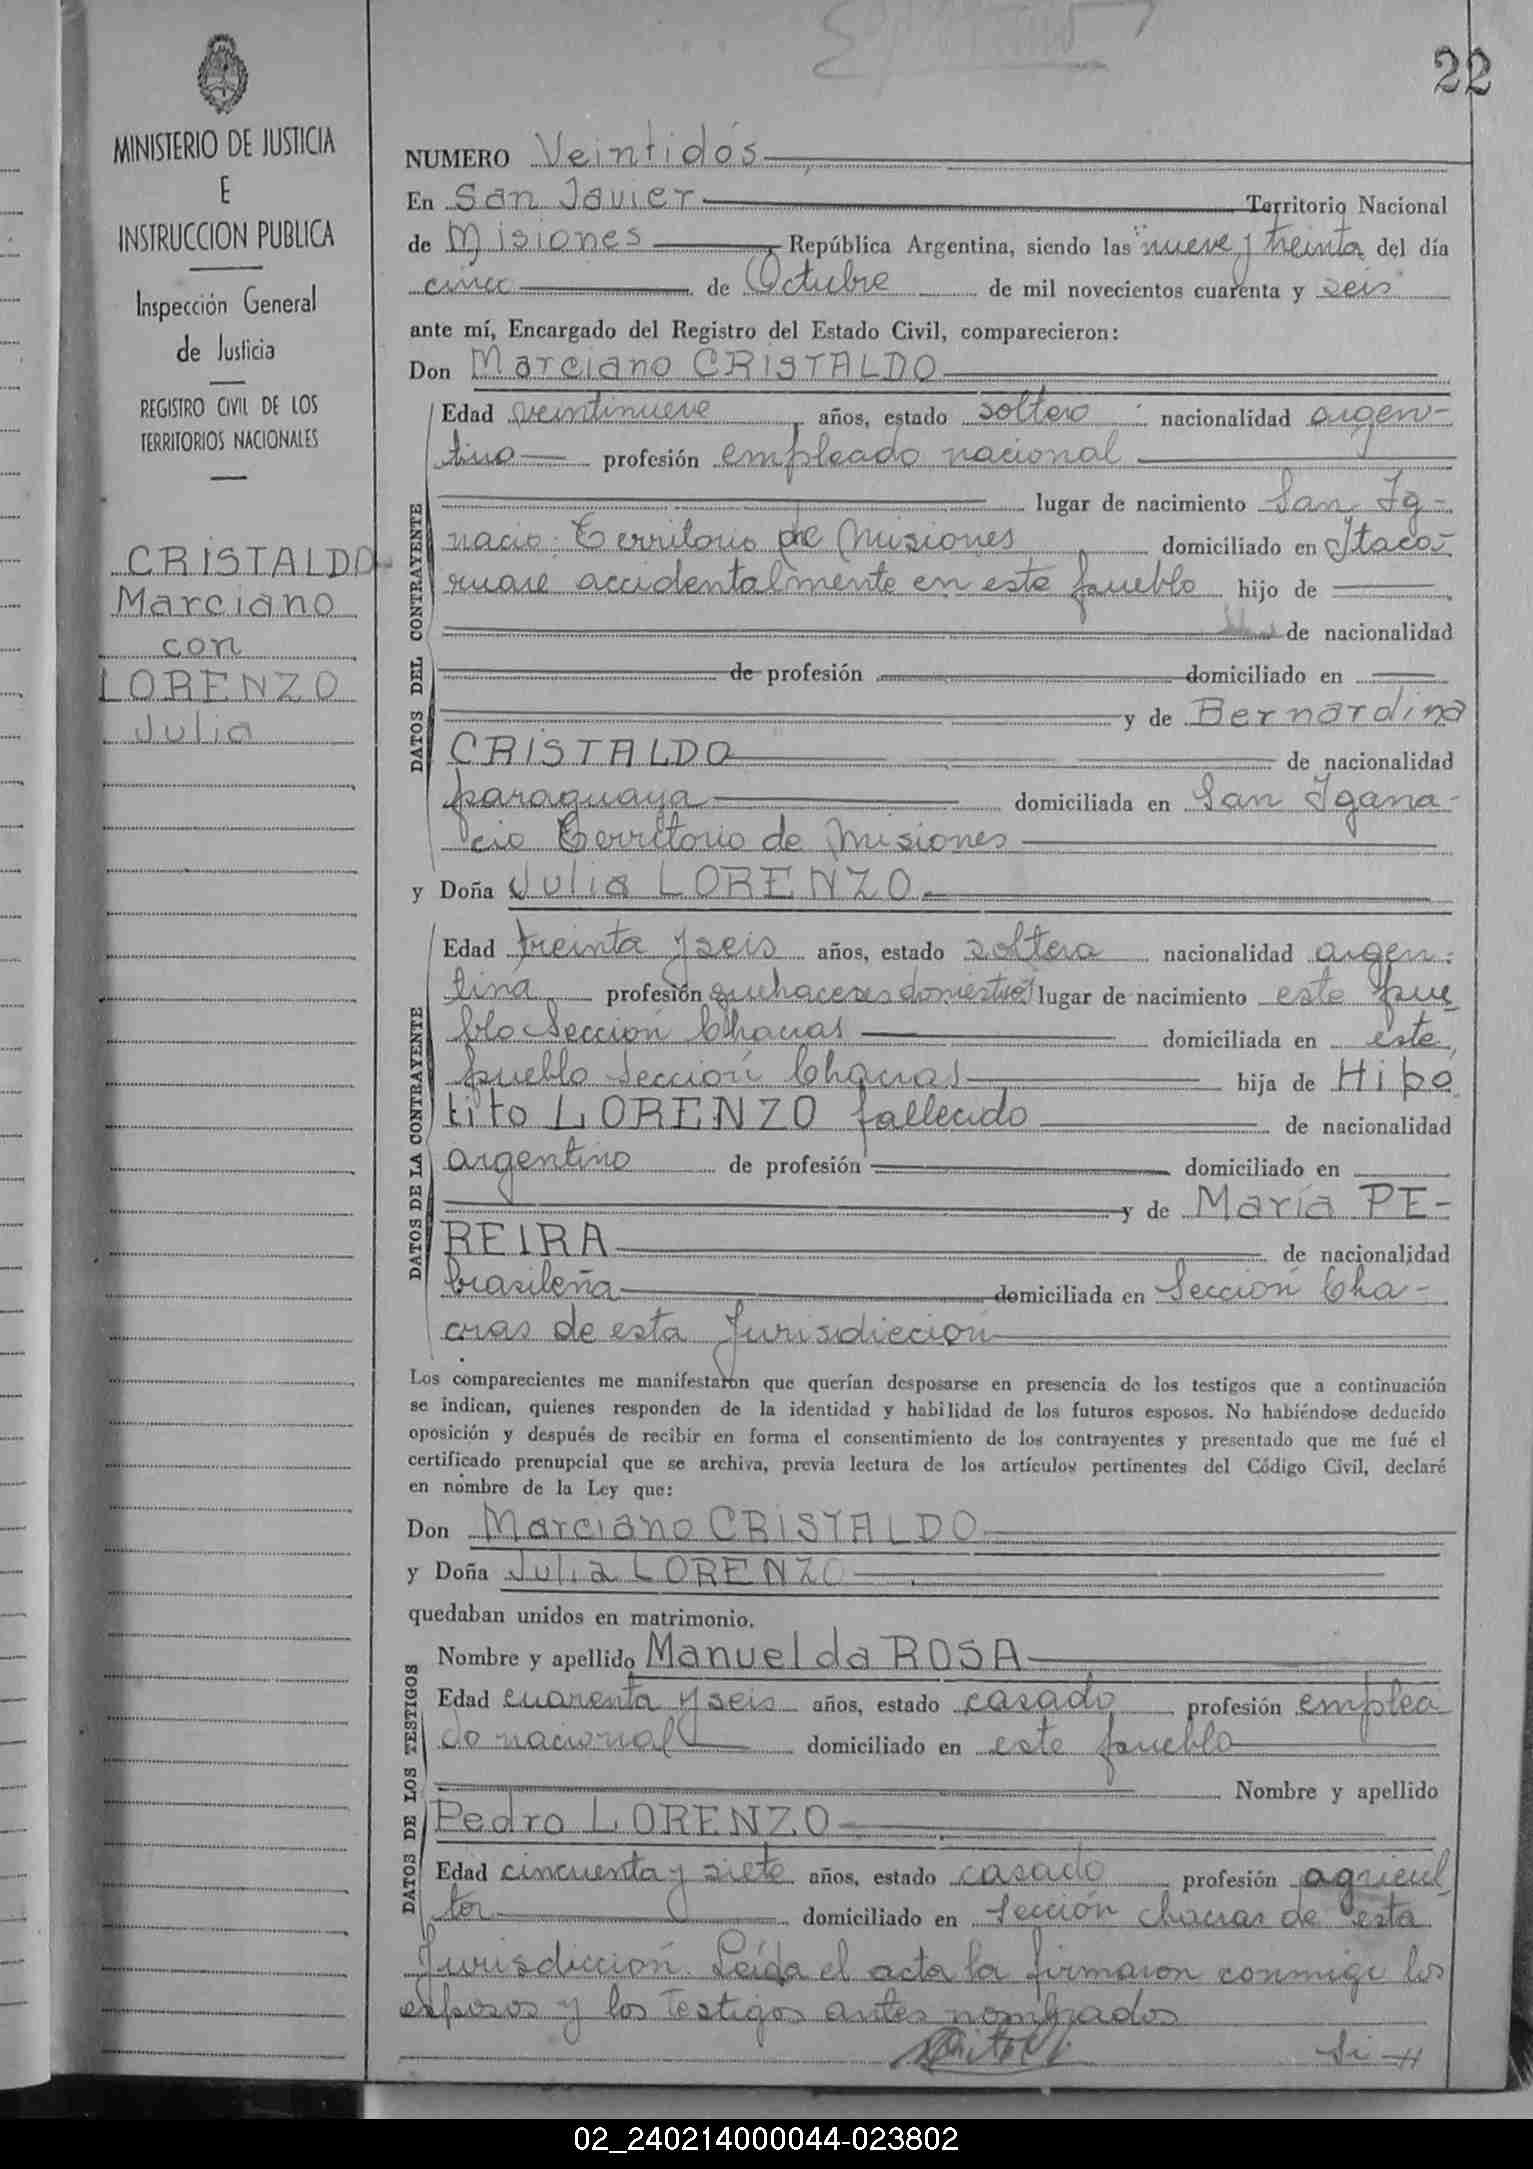 22
MINISTERIO DE JUSTICIA
E
INSTRUCCION PUBLICA
Inspección General
de Justicia
REGISTRO CIVIL DE LOS
TERRITORIOS NACIONALES
CRISTALDO
Marciano
con
LORENZO
Julia
NUMERO Veintidós
En San Javier Territorio Nacional
de Misiones República Argentina, siendo las nueve y treinta del día
cinco de Octubre de mil novecientos cuarenta y seis
ante mí, Encargado del Registro del Estado Civil, comparecieron:
Don Marciano CRISTALDO
DATOS DEL CONTRAYENTE
Edad veintinueve años, estado soltero nacionalidad argen-
tino profesión empleado nacional
lugar de nacimiento San Ig-
nacio Territorio de Misiones domiciliado en Itaca-
ruaré accidentalmente en este pueblo hijo de
de nacionalidad
de profesión domiciliado en
y de Bernardina
CRISTALDO de nacionalidad
paraguaya domiciliada en San Igana-
cio Territorio de Misiones
y Doña Julia LORENZO
DATOS DE LA CONTRAYENTE
Edad treinta y seis años, estado soltera nacionalidad argen-
tina profesión quehaceres domésticos lugar de nacimiento este pue-
blo Sección Chacras domiciliada en este
pueblo Sección Chacras hija de Hipo
lito LORENZO fallecido de nacionalidad
argentino de profesión domiciliado en
y de María PE-
REIRA de nacionalidad
brasileña domiciliada en Sección Cha-
cras de esta Jurisdiccion
Los comparecientes me manifestaron que querían desposarse en presencia de los testigos que a continuación
se indican, quienes responden de la identidad y habilidad de los futuros esposos. No habiéndose deducido
oposición y después de recibir en forma el consentimiento de los contrayentes y presentado que me fué el
certificado prenupcial que se archiva, previa lectura de los artículos pertinentes del Código Civil, declaré
en nombre de la Ley que:
Don Marciano CRISTALDO
y Doña Julia LORENZO
quedaban unidos en matrimonio.
DATOS DE LOS TESTIGOS
Nombre y apellido Manuel da ROSA
Edad cuarenta y seis años, estado casado profesión emplea
do nacional domiciliado en este pueblo
Nombre y apellido
Pedro LORENZO
Edad cincuenta y siete años, estado casado profesión agricul
tor domiciliado en Sección chacras de esta
Jurisdicción. Leída el acta la firmaron conmigo los
esposos y los testigos antes nombrados
02_240214000044-023802